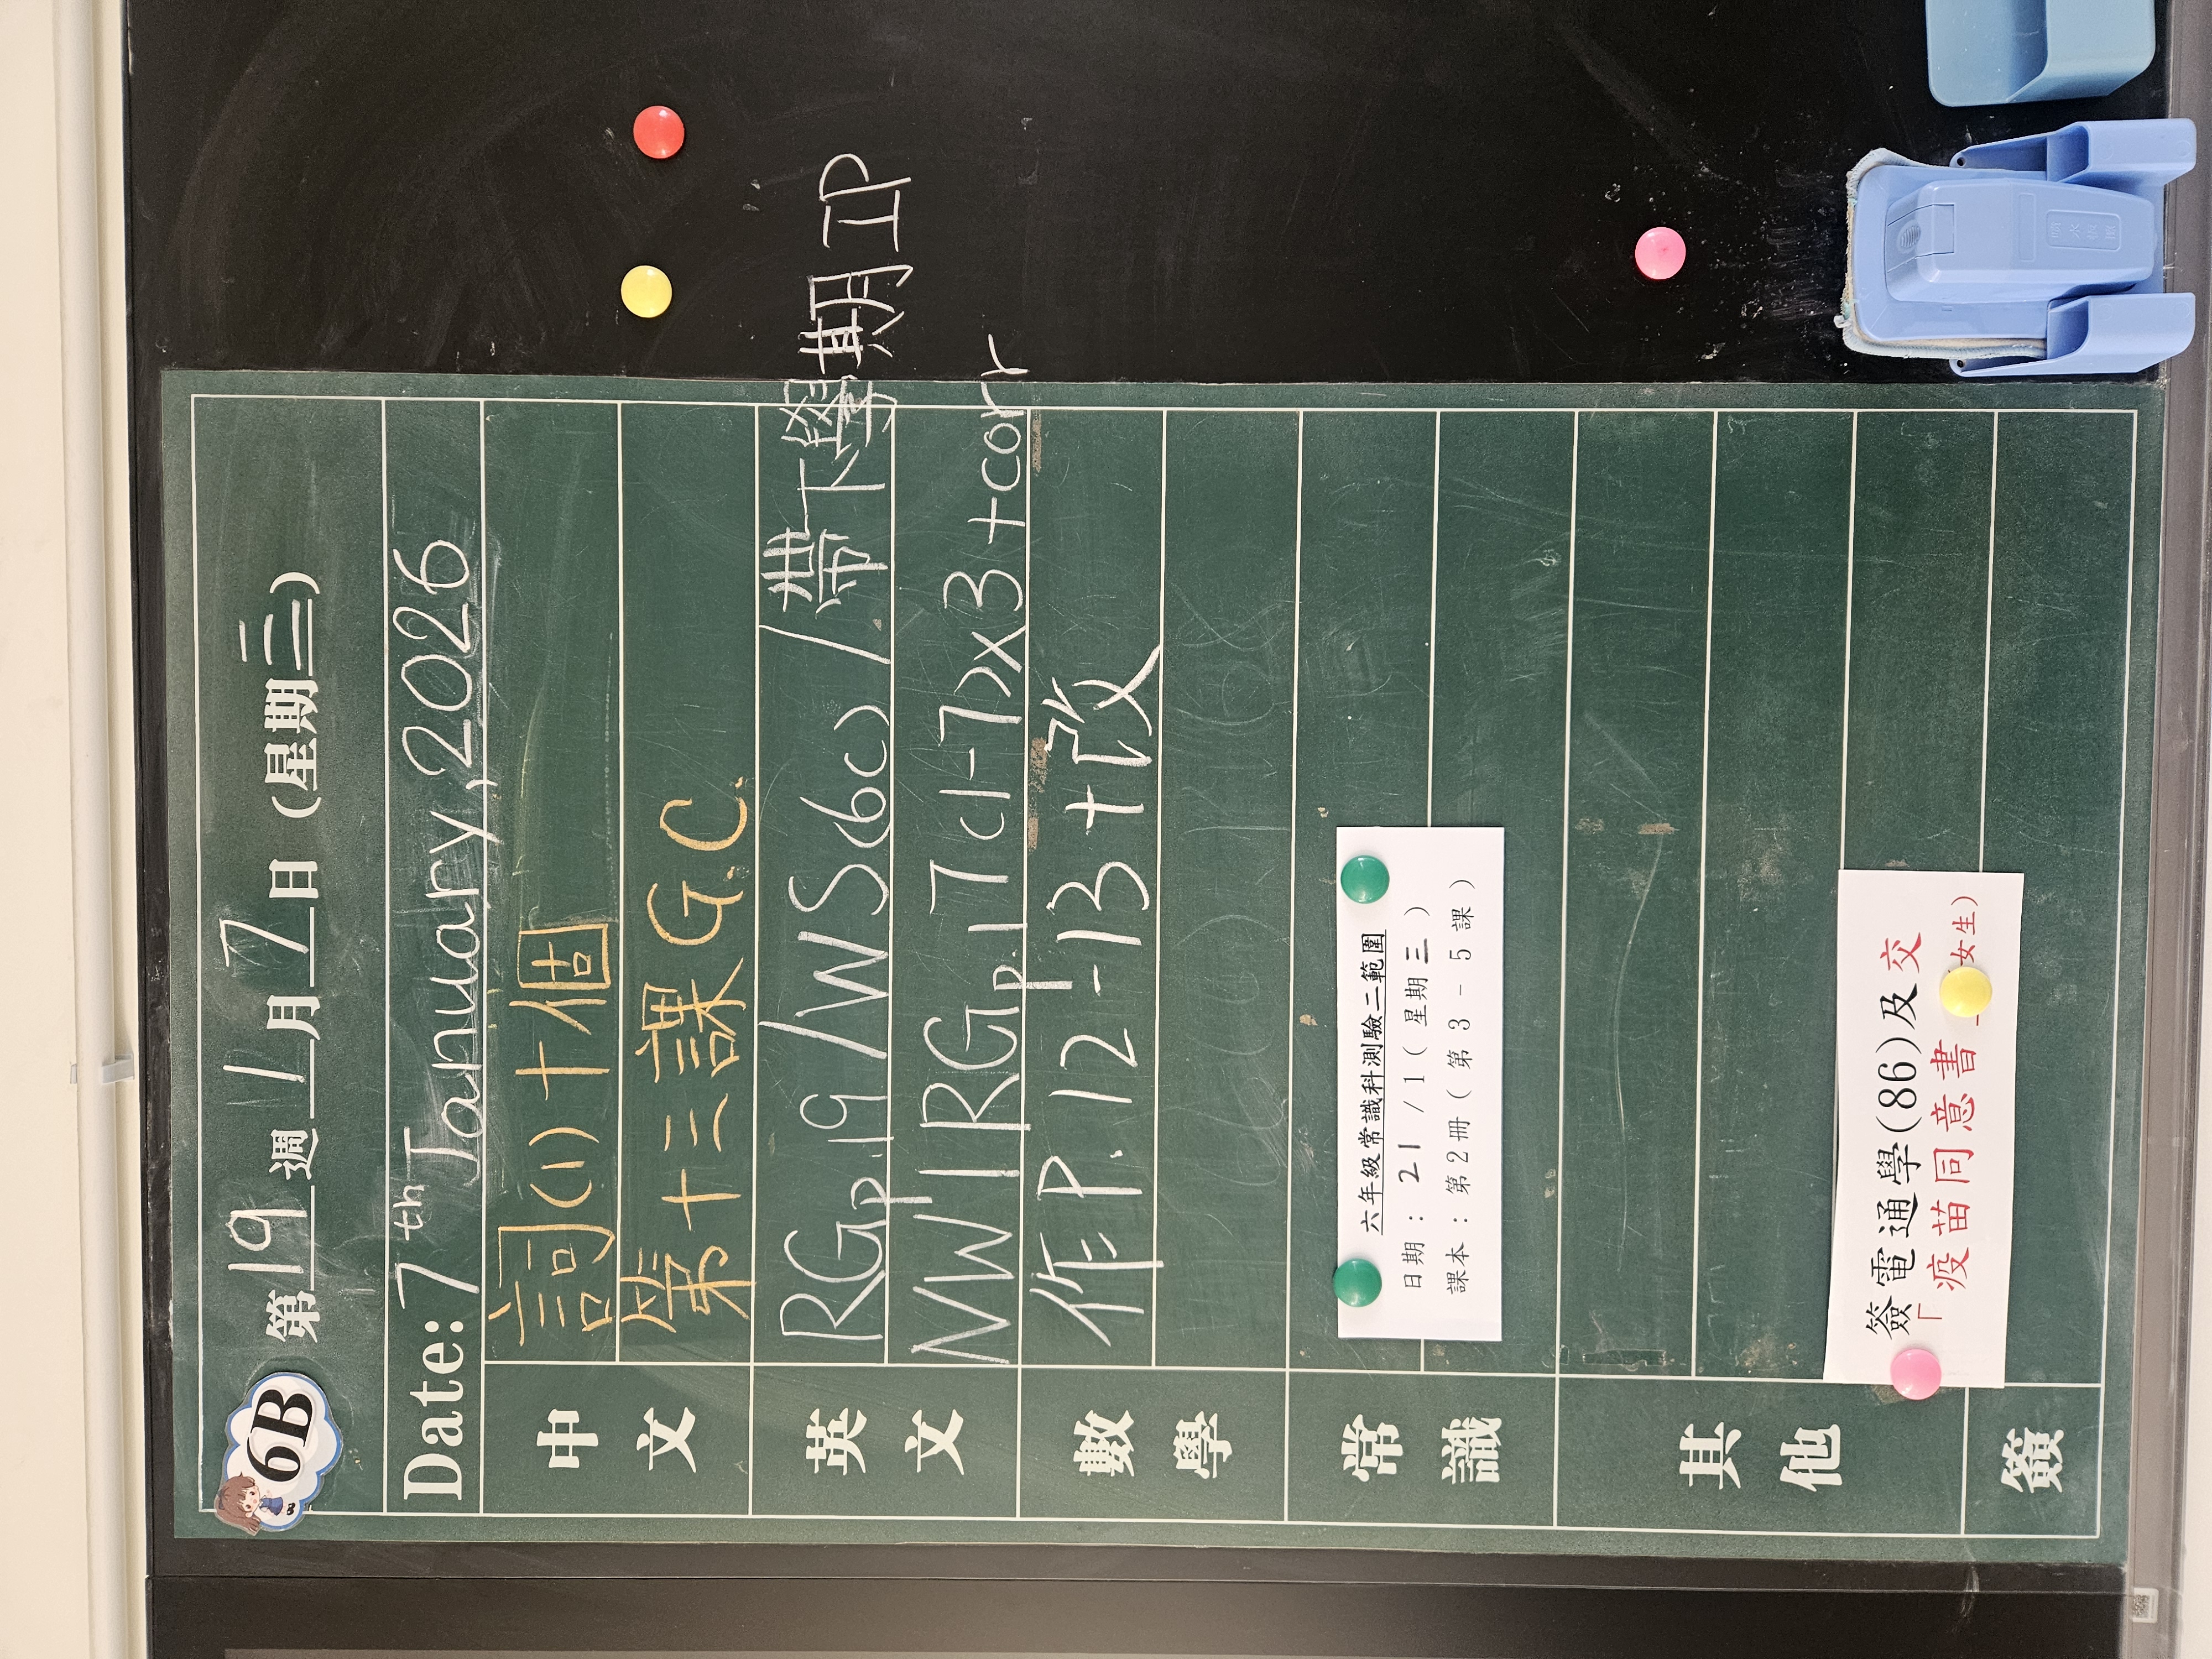 6B
第 19 週 1 月 7 日 (星期三)
Date: 7th January, 2026
中文
詞(1)十個
第十三課 G.C.
英文
RG p.19 / WS(6c) / 帶下學期 IP
MW1 RG p.17 c1-7)x3 + corr
數學
作 P.12-13 + 改
常識
六年級常識科測驗二範圍
日期: 21/1(星期三)
課本: 第2冊(第3-5課)
其他
簽電通學(86)及交
「疫苗同意書_女生)
簽